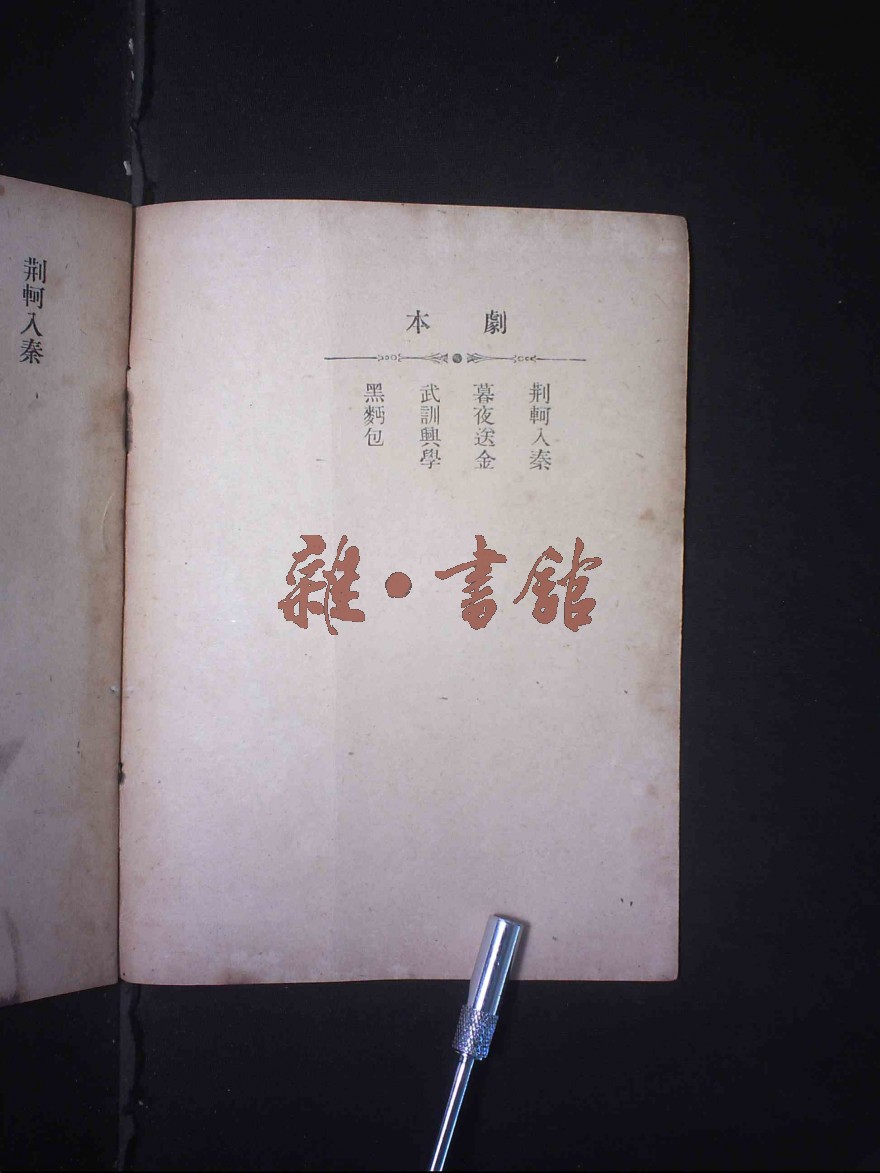 劇本
荆軻入秦
暮夜送金
武訓興學
黑麪包
雜·書館
荆軻入秦